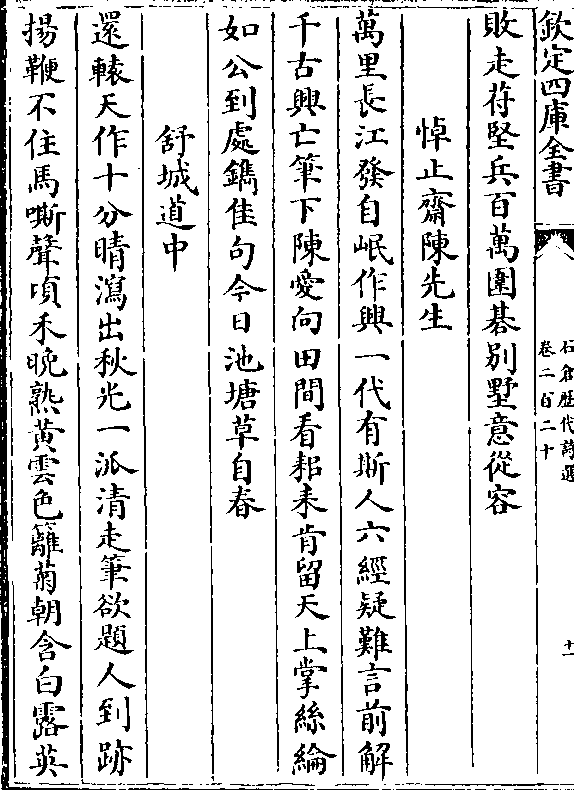 欽定四庫全書
石倉歴代詩選
卷二百二十
十一
敗走苻堅兵百萬圍碁别墅意從容
悼止齋陳先生
萬里長江發自岷作興一代有斯人六經疑難言前解
千古興亡筆下陳愛向田間看耜耒肯留天上掌絲綸
如公到處鐫佳句今日池塘草自春
舒城道中
還轅天作十分晴瀉出秋光一派清走筆欲題人到跡
揚鞭不住馬嘶聲頃禾晚熟黄雲色籬菊朝含白露英